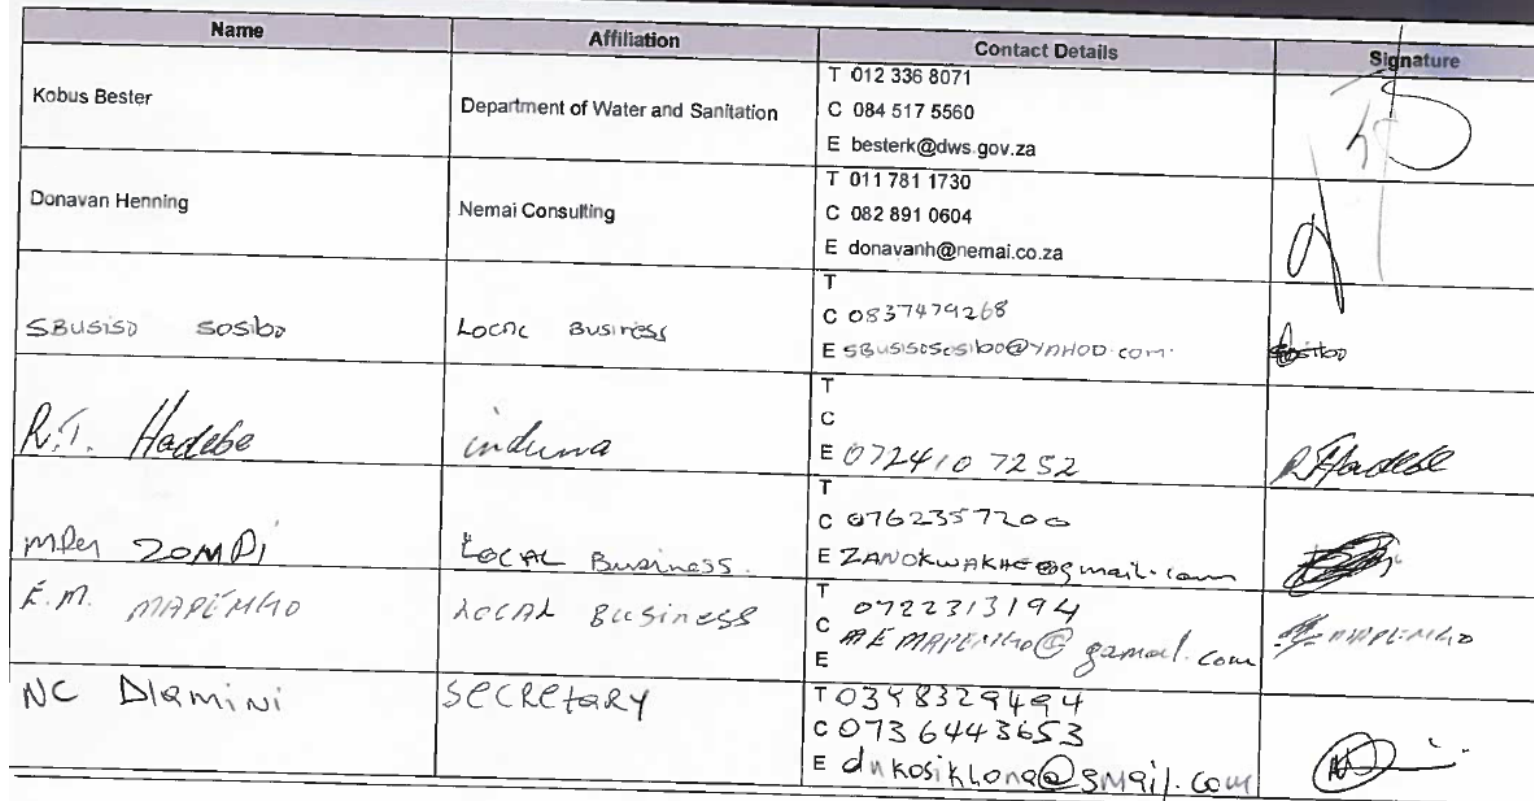 Name Affiliation Contact Details Signature
Kobus Bester Department of Water and Sanitation T 012 336 8071
C 084 517 5560
E besterk@dws.gov.za
Donavan Henning Nemai Consulting T 011 781 1730
C 082 891 0604
E donavanh@nemai.co.za
SBUSISO SOSIBO LOCAL BUSINESS T
C 0837479268
E SBUSISOSOSIBO@YAHOO.com
R.T. Hadebe induna T
C
E 0724107252 R.T Hadebe
ZOMDI LOCAL Business. T
C 0762357200
E ZANOKWAKHE@gmail.com
E.M. MAPEMHO LOCAL BUSINESS T 0722313194
C MEMAPEMHO@gamail.com MAPEMHO
E
NC Dlamini SECRETARY T 0348329494
C 0736443653
E dnkosikhona@gmail.com